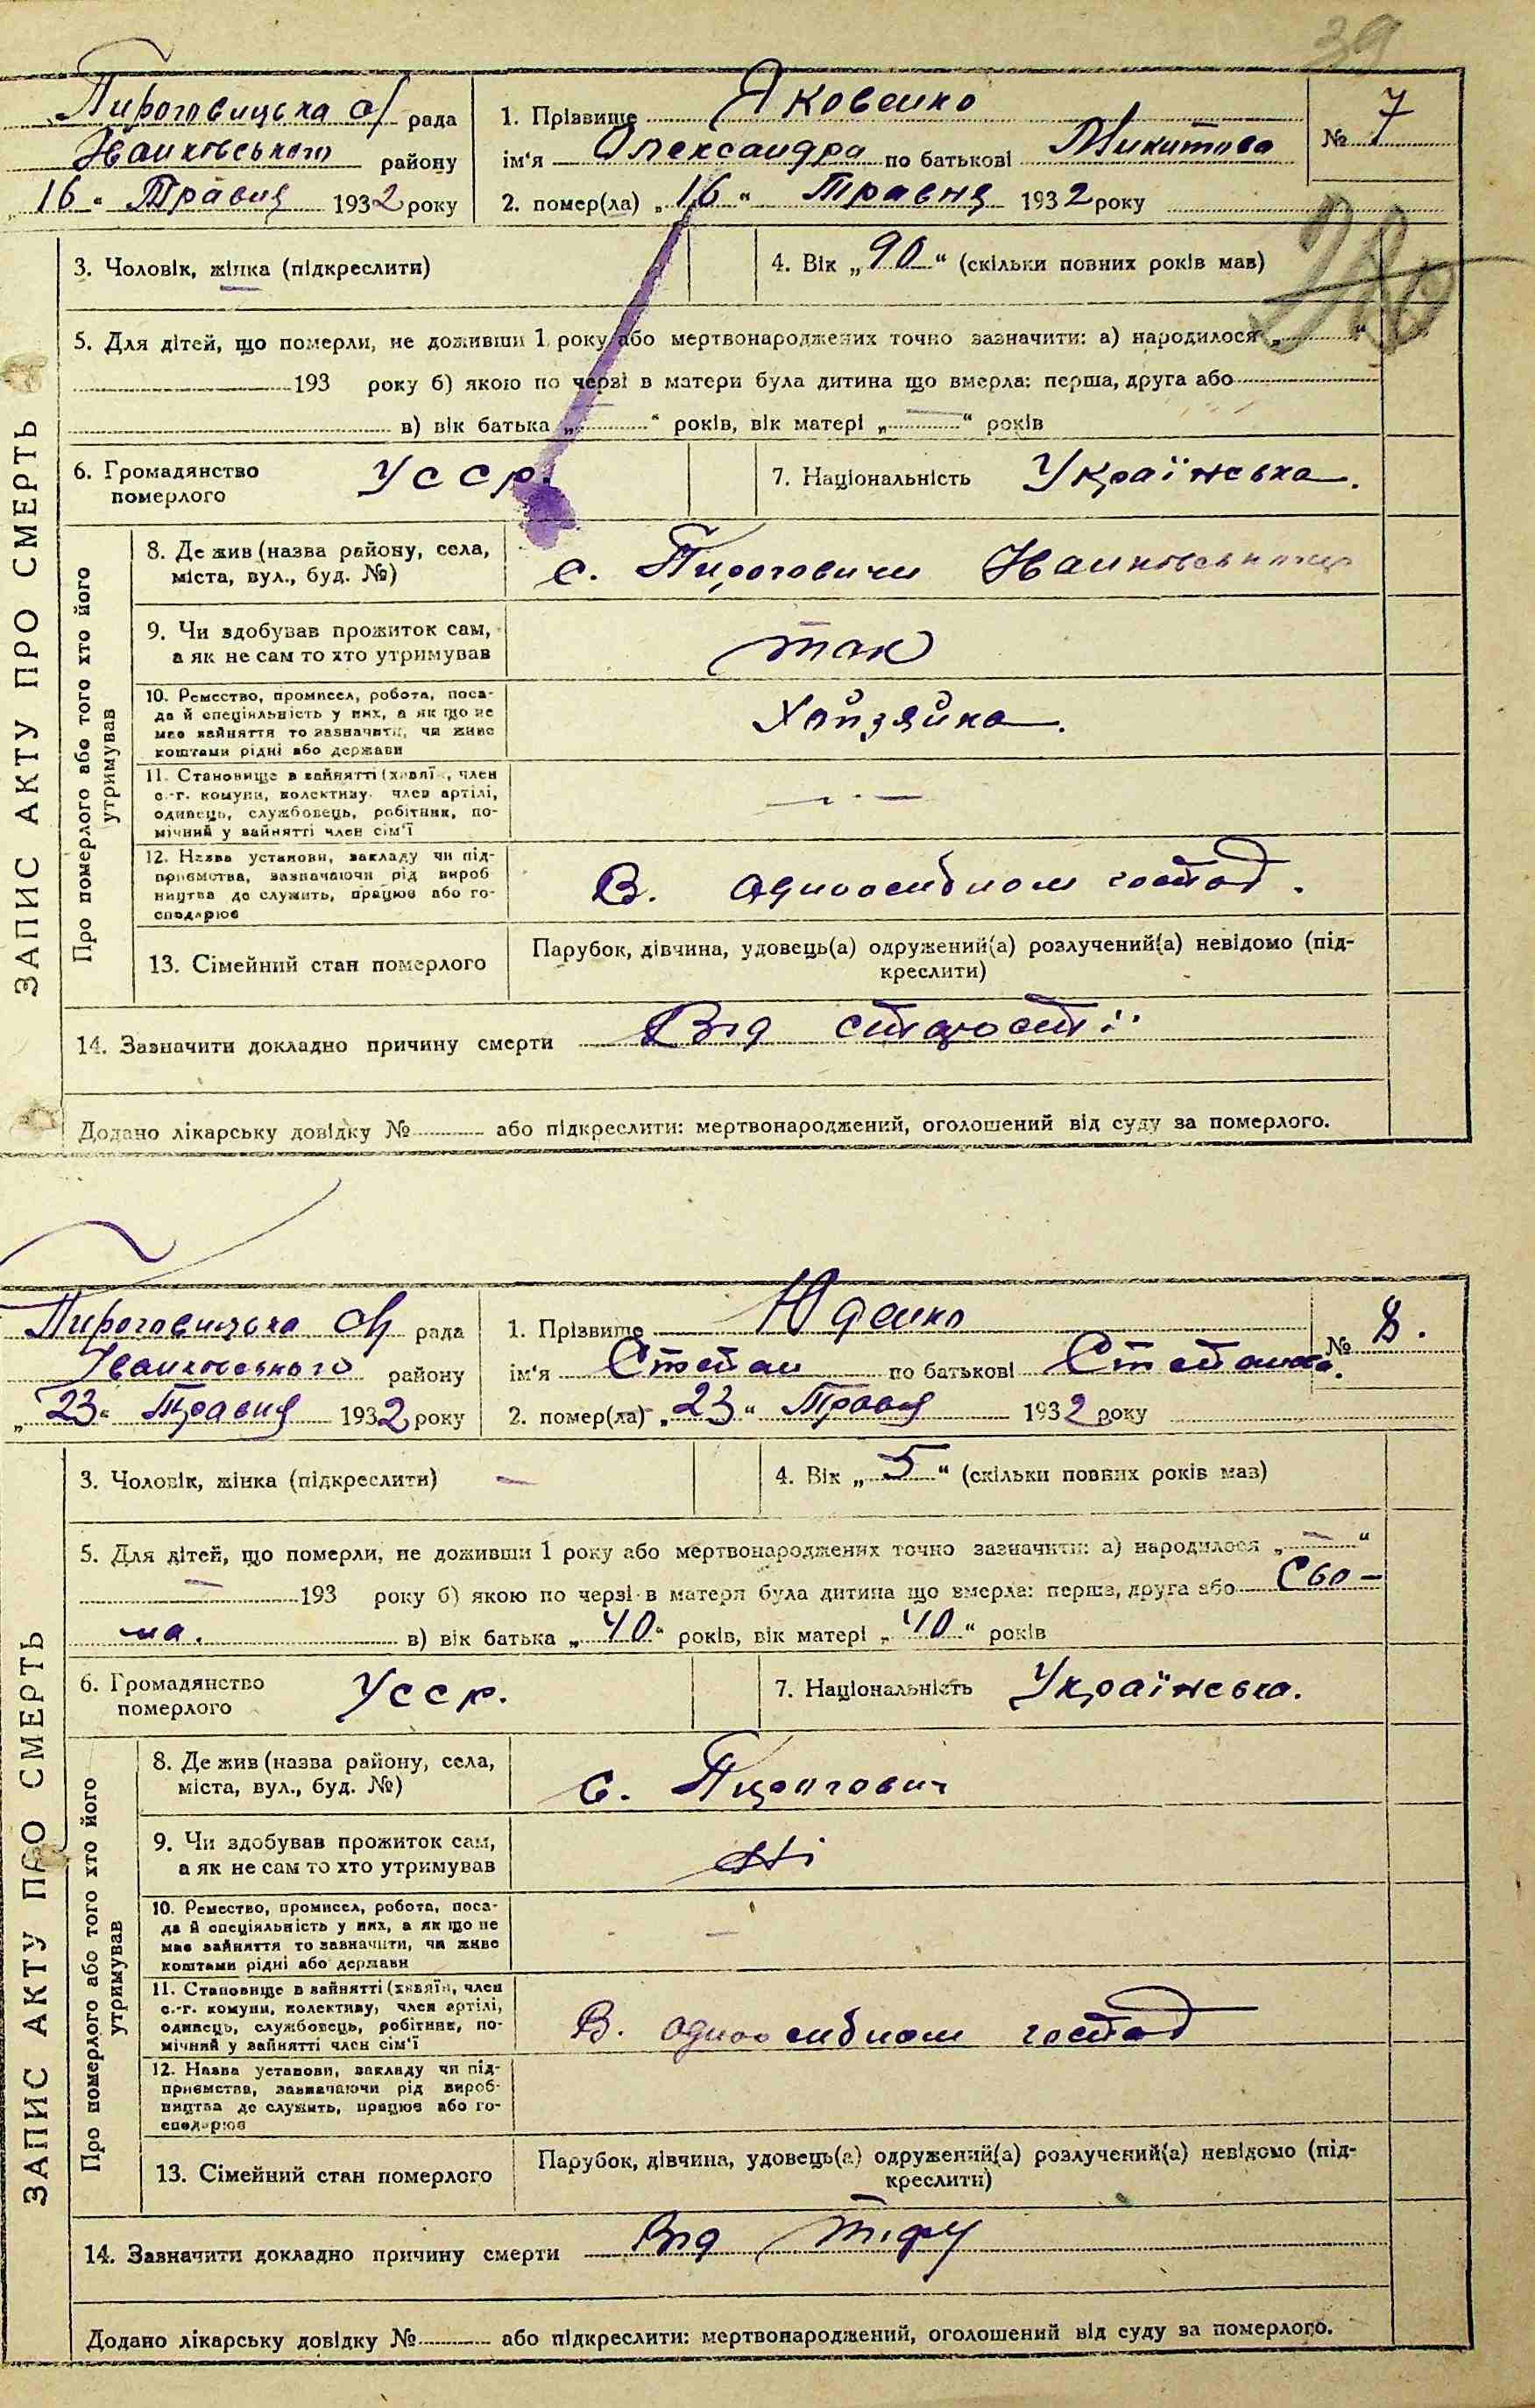 39
Пироговицька с/ рада
Іванковського району
„16“ Травня 1932 року
1. Прізвище Яковенко
ім'я Олександра по батькові Микитова
2. помер(ла) „16“ Травня 1932 року
№ 7
3. Чоловік, жінка (підкреслити)
4. Вік „90“ (скільки повних років мав)
5. Для дітей, що померли, не доживши 1 року або мертвонароджених точно зазначити: а) народилося „ “
193 року б) якою по черзі в матери була дитина що вмерла: перша, друга або
в) вік батька „ “ років, вік матері „—“ років
6. Громадянство померлого УССР.
7. Національність Українська.
ЗАПИС АКТУ ПРО СМЕРТЬ
Про померлого або того хто його утримував
8. Де жив (назва району, села,
міста, вул., буд. №)
с. Пироговичи Іванковського
9. Чи здобував прожиток сам,
а як не сам то хто утримував
так
10. Ремество, промисел, робота, поса-
да й спеціяльність у них, а як що не
має зайняття то зазначити, чи живе
коштами рідні або держави
Хойзяйка.
11. Становище в зайнятті (хазяї , член
с.-г. комуни, колективу, член артілі,
одинець, службовець, робітник, по-
мічний у зайнятті член сім'ї
— · —
12. Назва установи, закладу чи під-
приємства, зазначаючи рід вироб
ництва де служить, працює або го-
сподарює
В. одноосибном господ.
13. Сімейний стан померлого
Парубок, дівчина, удовець(а) одружений(а) розлучений(а) невідомо (під-
креслити)
14. Зазначити докладно причину смерти Від старості
Додано лікарську довідку № або підкреслити: мертвонароджений, оголошений від суду за померлого.
Пироговицька с/ рада
Іванковського району
„23“ Травня 1932 року
1. Прізвище Юденко
ім'я Степан по батькові Степанов.
2. помер(ла) „23“ Травня 1932 року
№ 8.
3. Чоловік, жінка (підкреслити) —
4. Вік „5“ (скільки повних років мав)
5. Для дітей, що померли, не доживши 1 року або мертвонароджених точно зазначити: а) народилося „—“
— 193 року б) якою по черзі в матери була дитина що вмерла: перша, друга або Сьо-
ма. в) вік батька „40“ років, вік матері „40“ років
6. Громадянство померлого УССР.
7. Національність Українська.
ЗАПИС АКТУ ПРО СМЕРТЬ
Про померлого або того хто його утримував
8. Де жив (назва району, села,
міста, вул., буд. №)
с. Пирогович
9. Чи здобував прожиток сам,
а як не сам то хто утримував
Ні
10. Ремество, промисел, робота, поса-
да й спеціяльність у них, а як що не
має зайняття то зазначити, чи живе
коштами рідні або держави
—
11. Становище в зайнятті (хазяїн, член
с.-г. комуни, колективу, член артілі,
одинець, службовець, робітник, по-
мічний у зайнятті член сім'ї
В. одноосибном господ
12. Назва установи, закладу чи під-
приємства, зазначаючи рід вироб-
ництва де служить, працює або го-
сподарює
13. Сімейний стан померлого
Парубок, дівчина, удовець(а) одружений(а) розлучений(а) невідомо (під-
креслити)
14. Зазначити докладно причину смерти Від тіфу
Додано лікарську довідку № або підкреслити: мертвонароджений, оголошений від суду за померлого.